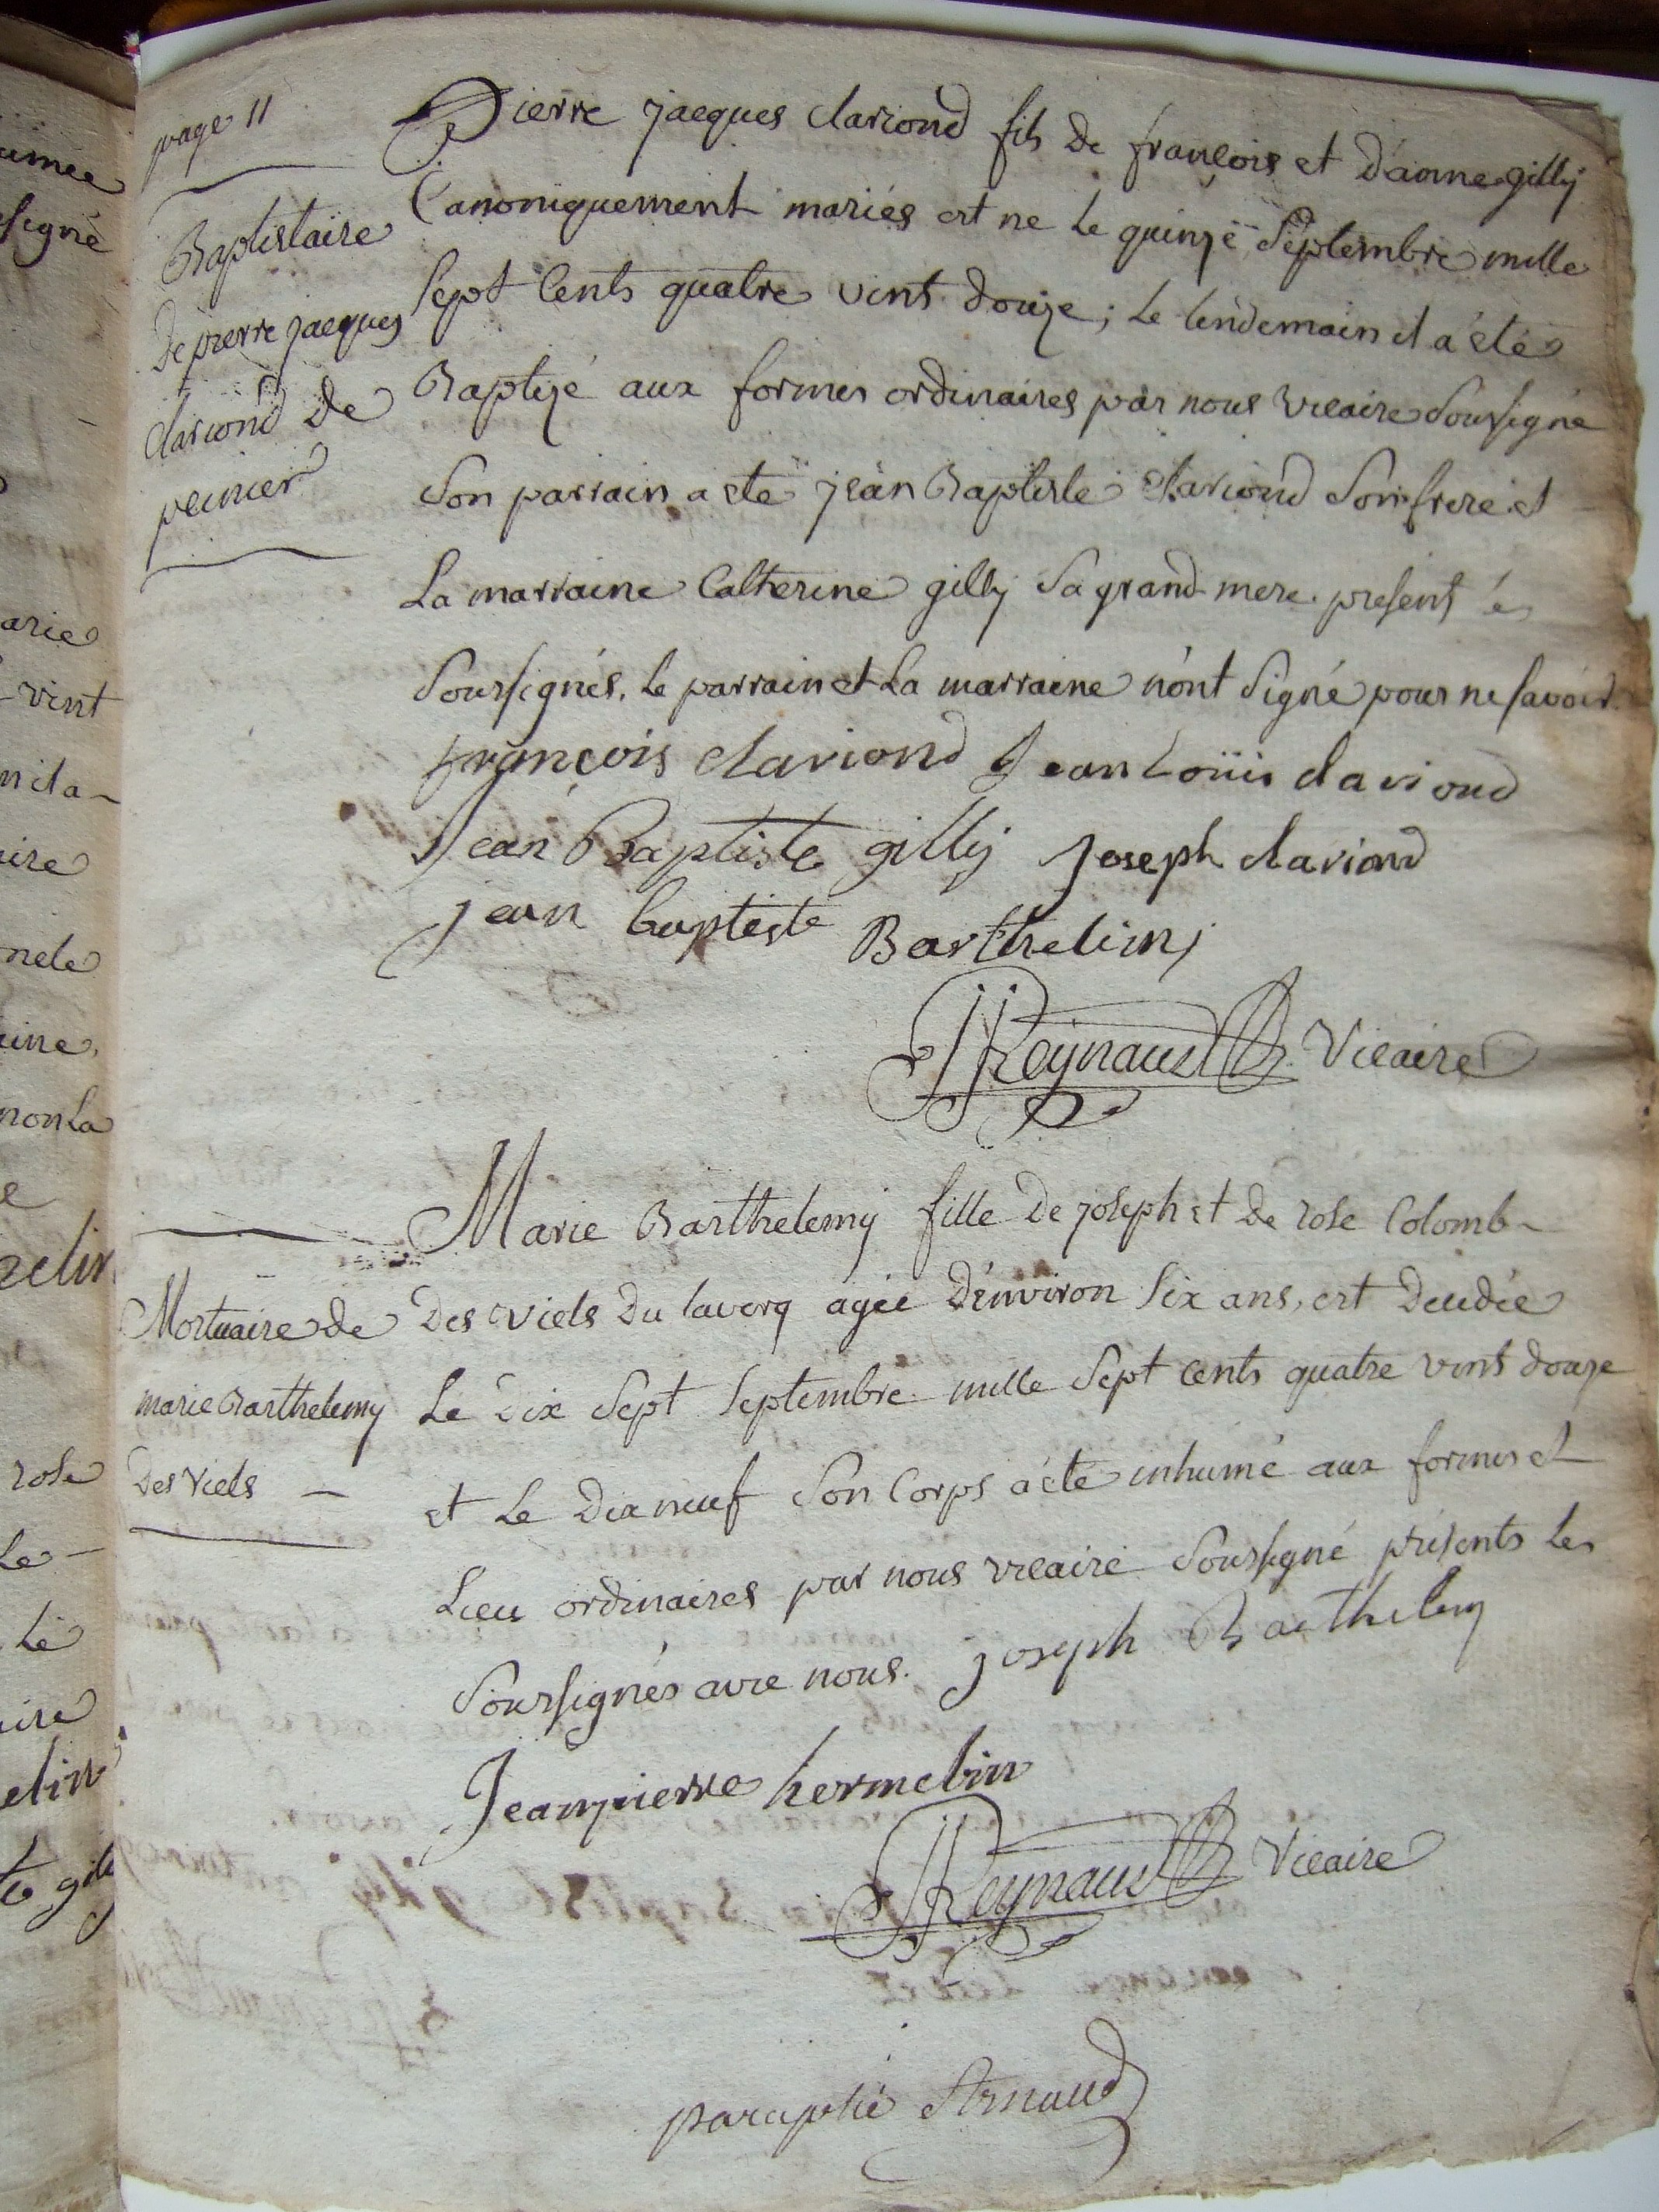 page 11
Baptistaire
de pierre jacques
clariond de
peinier
Pierre jacques clariond fils de françois et d'anne gilly
Canoniquement mariés est ne le quinze Septembre mille
Sept Cents quatre vint douze; le lendemain il a été
Baptizé aux formes ordinaires par nous vicaire Soussigné
Son parrain a eté jean Baptiste clariond Son frere et
La marraine Catherine gilly Sa grand-mere. present les
Soussignés. le parrain et la marraine n'ont Signé pour ne Savoir.
françois clariond Jean Loüis clariond
Jean Baptiste gilly joseph clariond
jean baptiste Barthelimj
JJReynaud Vicaire
Mortuaire de
marie Barthelemy
Des Viels
Marie Barthelemy fille de joseph et de rose Colomb
des Viels du laverq agée d'environ Six ans, est decedée
Le dix Sept Septembre mille Sept Cents quatre vint douze
et le dix neuf Son Corps a été inhumé aux formes et
Lieu ordinaires par nous vicaire Soussigné présents les
Soussignés avec nous. joseph Barthelemy
Jean pierre hermelin
JJReynaud Vicaire
paraphé Arnaud
umée
signé
arie
vint
aire
nele
aine,
non la
e
rose
Le
Le
aire
elin
te gilly